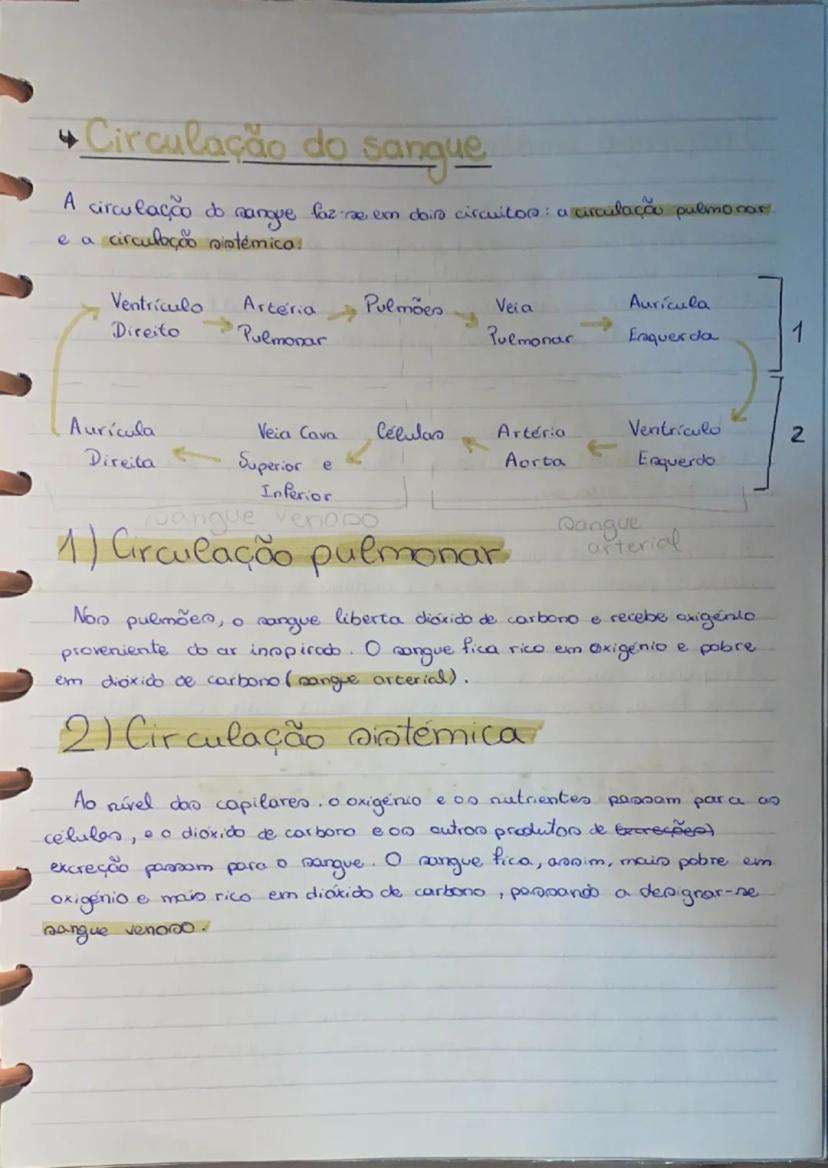 ↳ Circulação do sangue
A circulação do sangue faz-se em dois circuitos: a circulação pulmonar
e a circulação sistémica:
Ventrículo Artéria Pulmões Veia Aurícula
Direito Pulmonar Pulmonar Esquerda
1
Aurícula Veia Cava Células Artéria Ventrículo
Direita Superior e Aorta Esquerdo
Inferior
2
sangue venoso sangue
arterial
1) Circulação pulmonar
Nos pulmões, o sangue liberta dióxido de carbono e recebe oxigénio
proveniente do ar inspirado. O sangue fica rico em oxigénio e pobre
em dióxido de carbono (sangue arterial).
2) Circulação sistémica
Ao nível dos capilares, o oxigénio e os nutrientes passam para as
células, e o dióxido de carbono e os outros produtos de excreções)
excreção passam para o sangue. O sangue fica, assim, mais pobre em
oxigénio e mais rico em dióxido de carbono, passando a designar-se
sangue venoso.